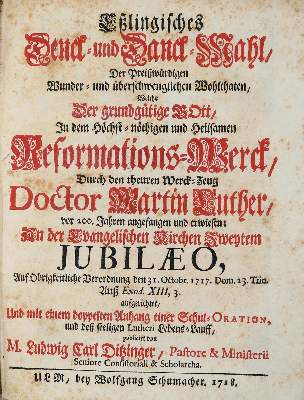 Eßlingisches
Denck- und Danck-Mahl,
Der Preißwürdigen
Wunder- und überschwenglichen Wohlthaten,
Welche
Der grundgütige GOtt,
In dem Höchst-nöthigen und Heilsamen
Reformations-Werck,
Durch den theuren Werck-Zeug
Doctor Martin Luther,
vor 200. Jahren angefangen und erwiesen:
An der Evangelischen Kirchen Zweytem
JUBILÆO,
Auf Obrigkeitliche Verordnung den 31. Octobr. 1717. Dom. 23. Trin.
Auß Exod. XIII, 3.
aufgerichtet,
Und mit einem doppelten Anhang einer Schul-ORATION,
und deß seeligen Lutheri Lebens-Lauff,
publicirt von
M. Ludwig Carl Ditzinger, Pastore & Ministerii
Seniore Consistoriali & Scholarcha.
ULM, bey Wolfgang Schumacher. 1718.